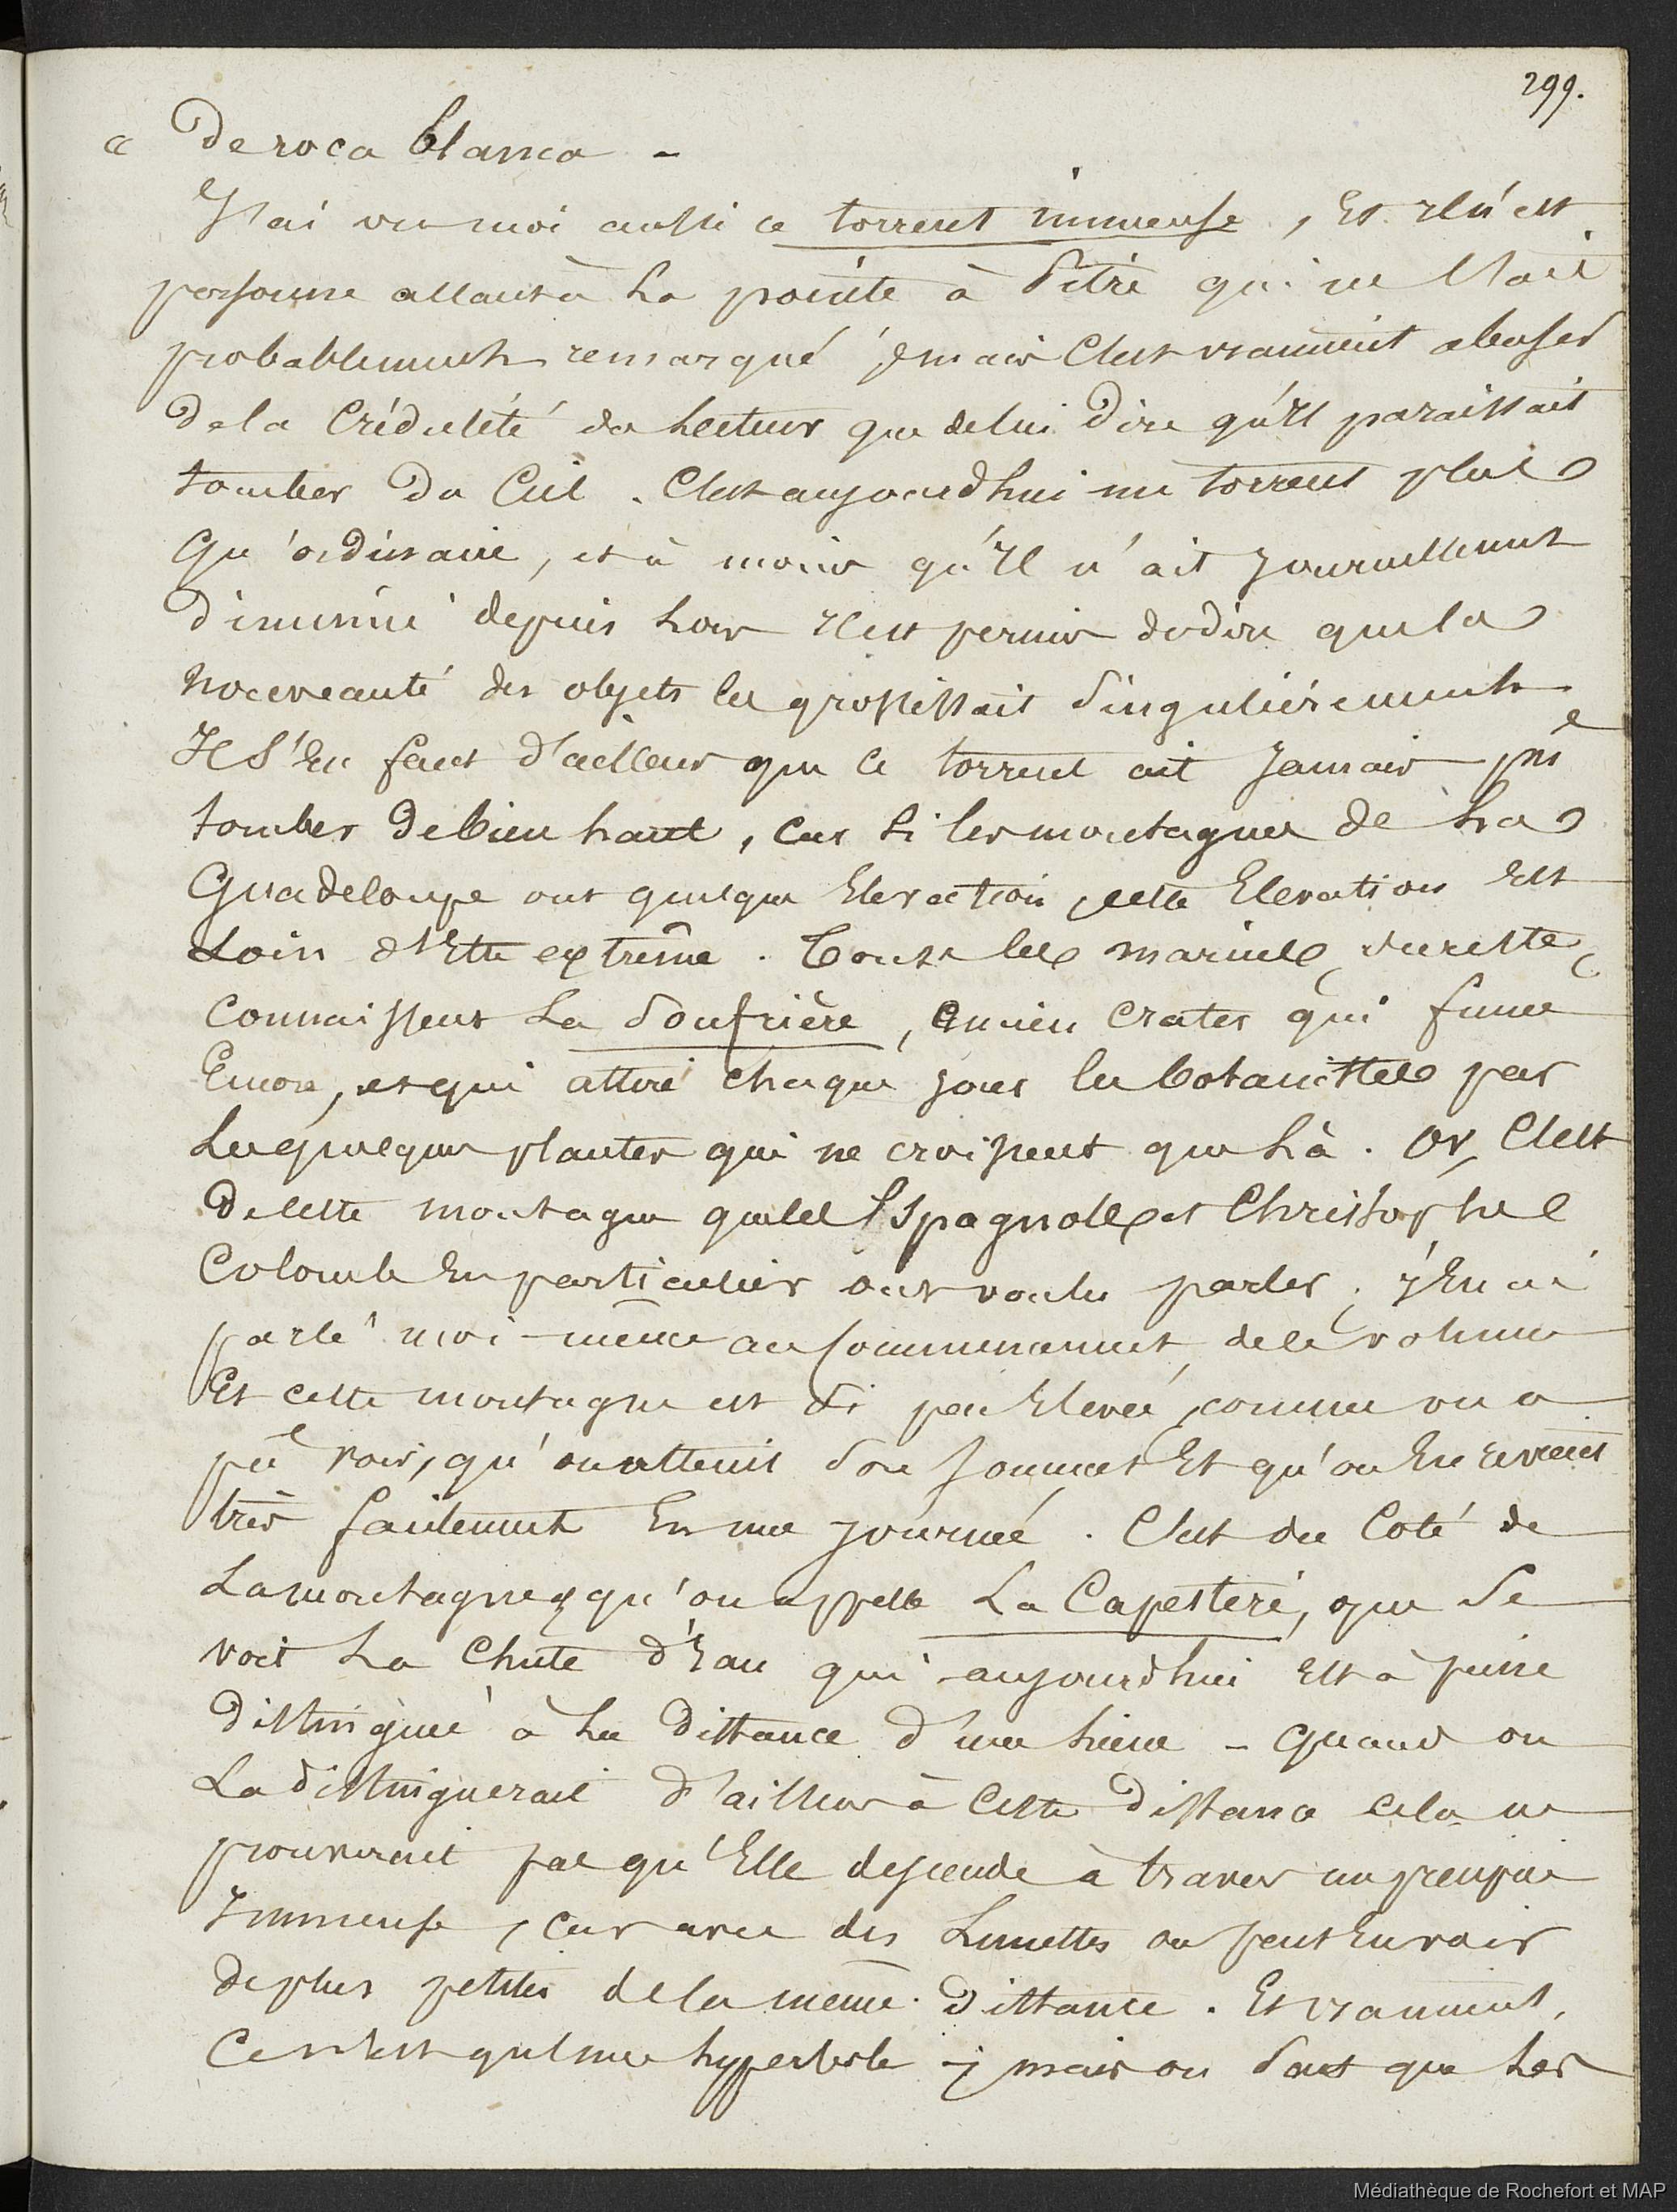 299.
« De roca blanca -
J'ai vu moi aussi ce torrent immense, Et il n'est
personne allant à La pointe à Pitre qui ne l'ait
probablement remarqué ; mais C'est vraiment abuser
de la Crédulité du Lecteur que de lui Dire qu'Il paraissait
tomber Du Ciel. C'est aujourd'hui un torrent plus
Qu'ordinaire, et à moins qu'Il n'ait Journellement
Diminué depuis Lors Il est permis de dire que la
Nouveauté des objets les grossissait Singulièrement.
Il S'En faut d'ailleurs que Ce torrent ait Jamais pû
tomber De bien haut, Car Si les montagnes de La
Guadeloupe ont quelque Elevation, cette Elevation Est
Loin d'Etre extrême. Tous les marins, du reste,
Connaissent La Soufrière, ancien Crater qui fume
Encore, et qui attire chaque jour les botanistes par
Les quelques plantes qui ne croissent que Là. Or, C'est
De cette montagne que les Espagnols et Christophe
Colomb En particulier ont voulu parler ; j'En ai
parlé moi-même au Commencement de ce volume
Et cette montagne est Si peu Elevée, comme on a
pû voir, qu'on atteint Son Sommet Et qu'on En revient
très facilement En une journée. C'est du Coté de
La montagne qu'on appelle La Capesterre, que Se
voit La Chute d'Eau qui aujourdhui Est à peine
Distinguée à La Distance d'une Lieue - Quand on
La distinguerait d'ailleurs à Cette Distance cela ne
prouverait pas qu'Elle descende à travers un
Immense, Car avec des Lunettes on peut En voir
De plus petites de la même Distance. Et vraiment,
Ce n'Est qu'une hyperbole ; mais on Sait que Les
Médiathèque de Rochefort et MAP